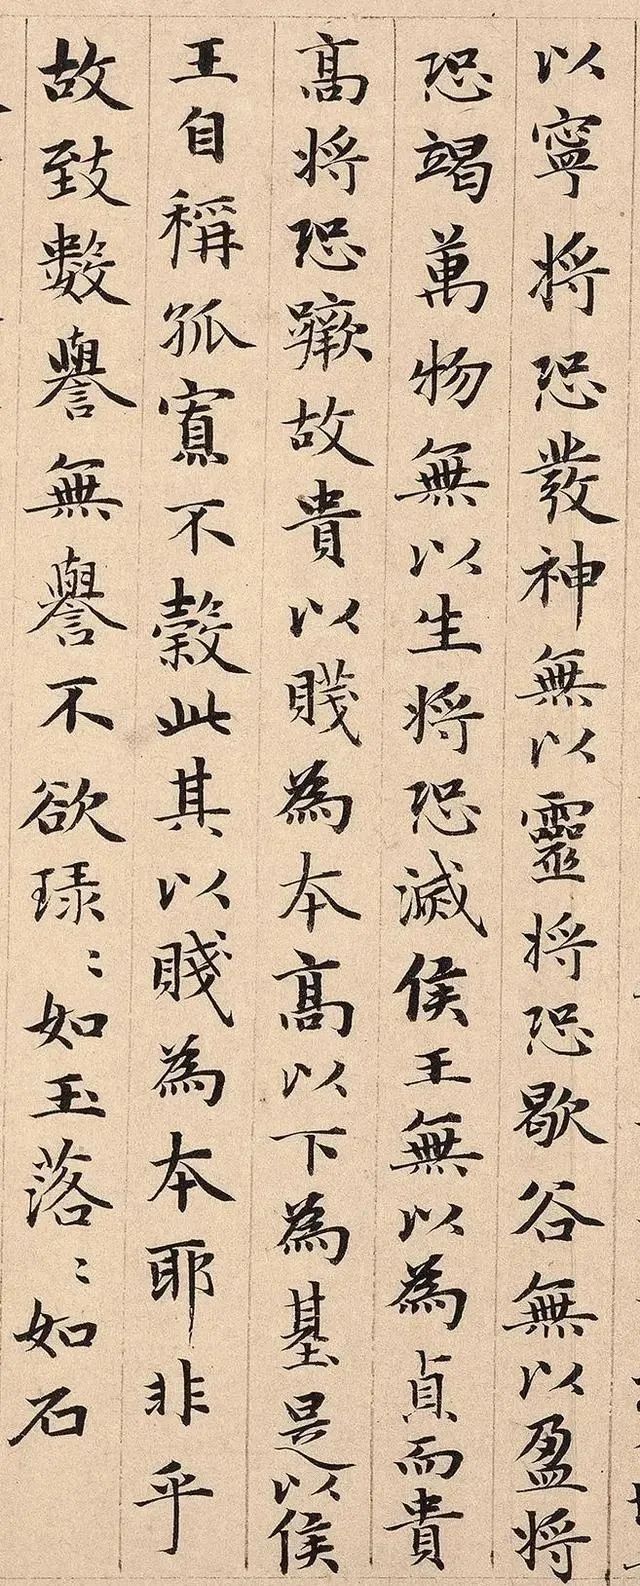 以寧將恐發神無以靈將恐歇谷無以盈將
恐竭萬物無以生將恐滅侯王無以為貞而貴
高將恐蹶故貴以賤為本高以下為基是以侯
王自稱孤寡不穀此其以賤為本耶非乎
故致數譽無譽不欲琭〻如玉落〻如石